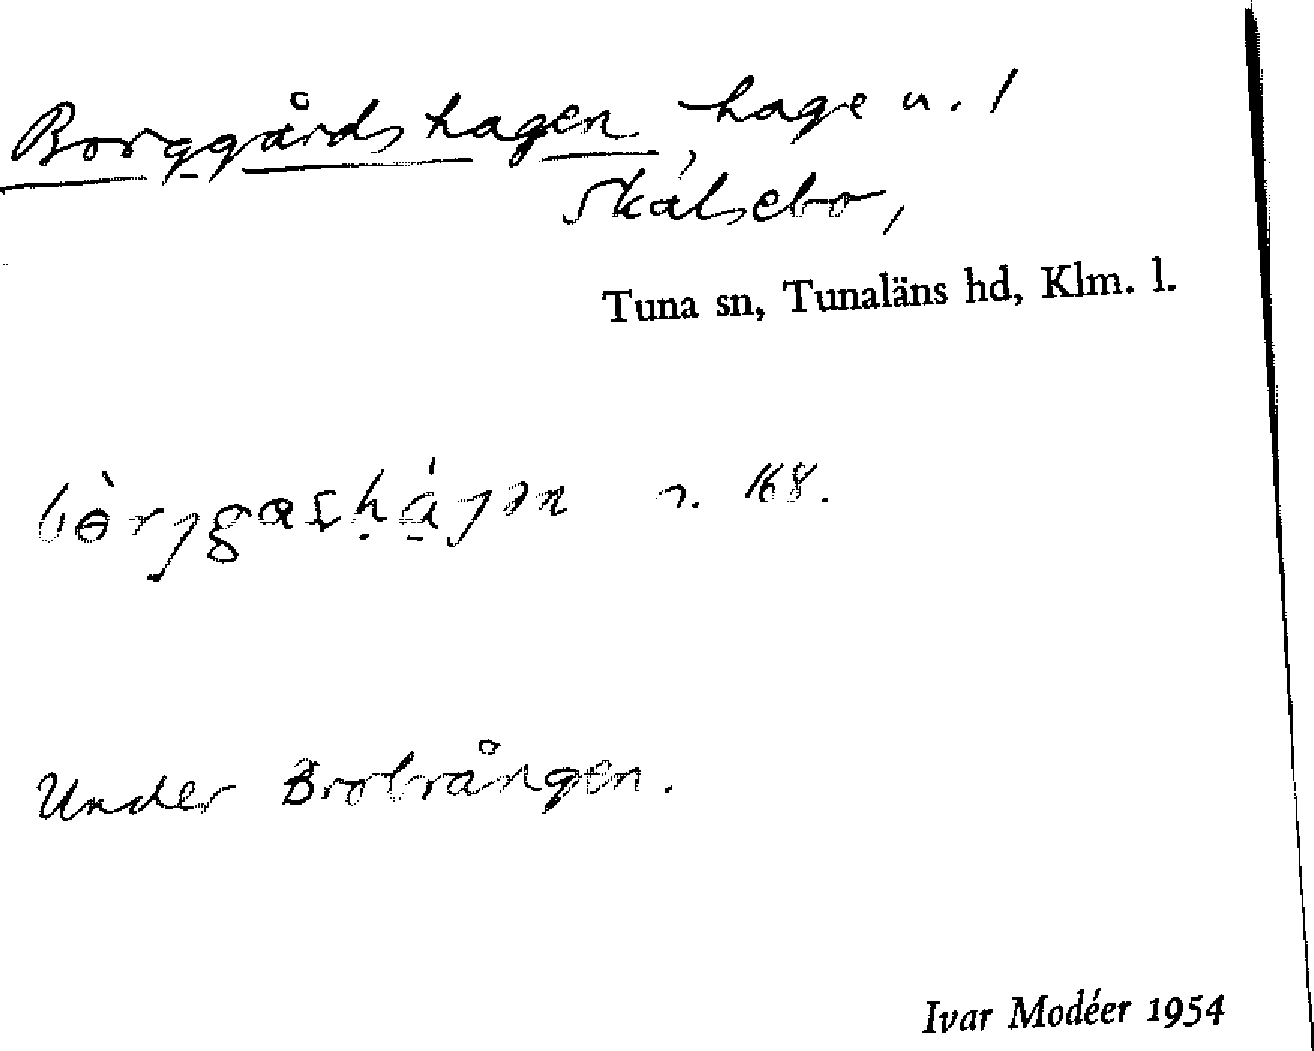 Borggårdshagen, hage u. /
Skälsebo,
Tuna sn, Tunaläns hd, Klm. l.
n. 168.
Under Brotrången.
Ivar Modéer 1954